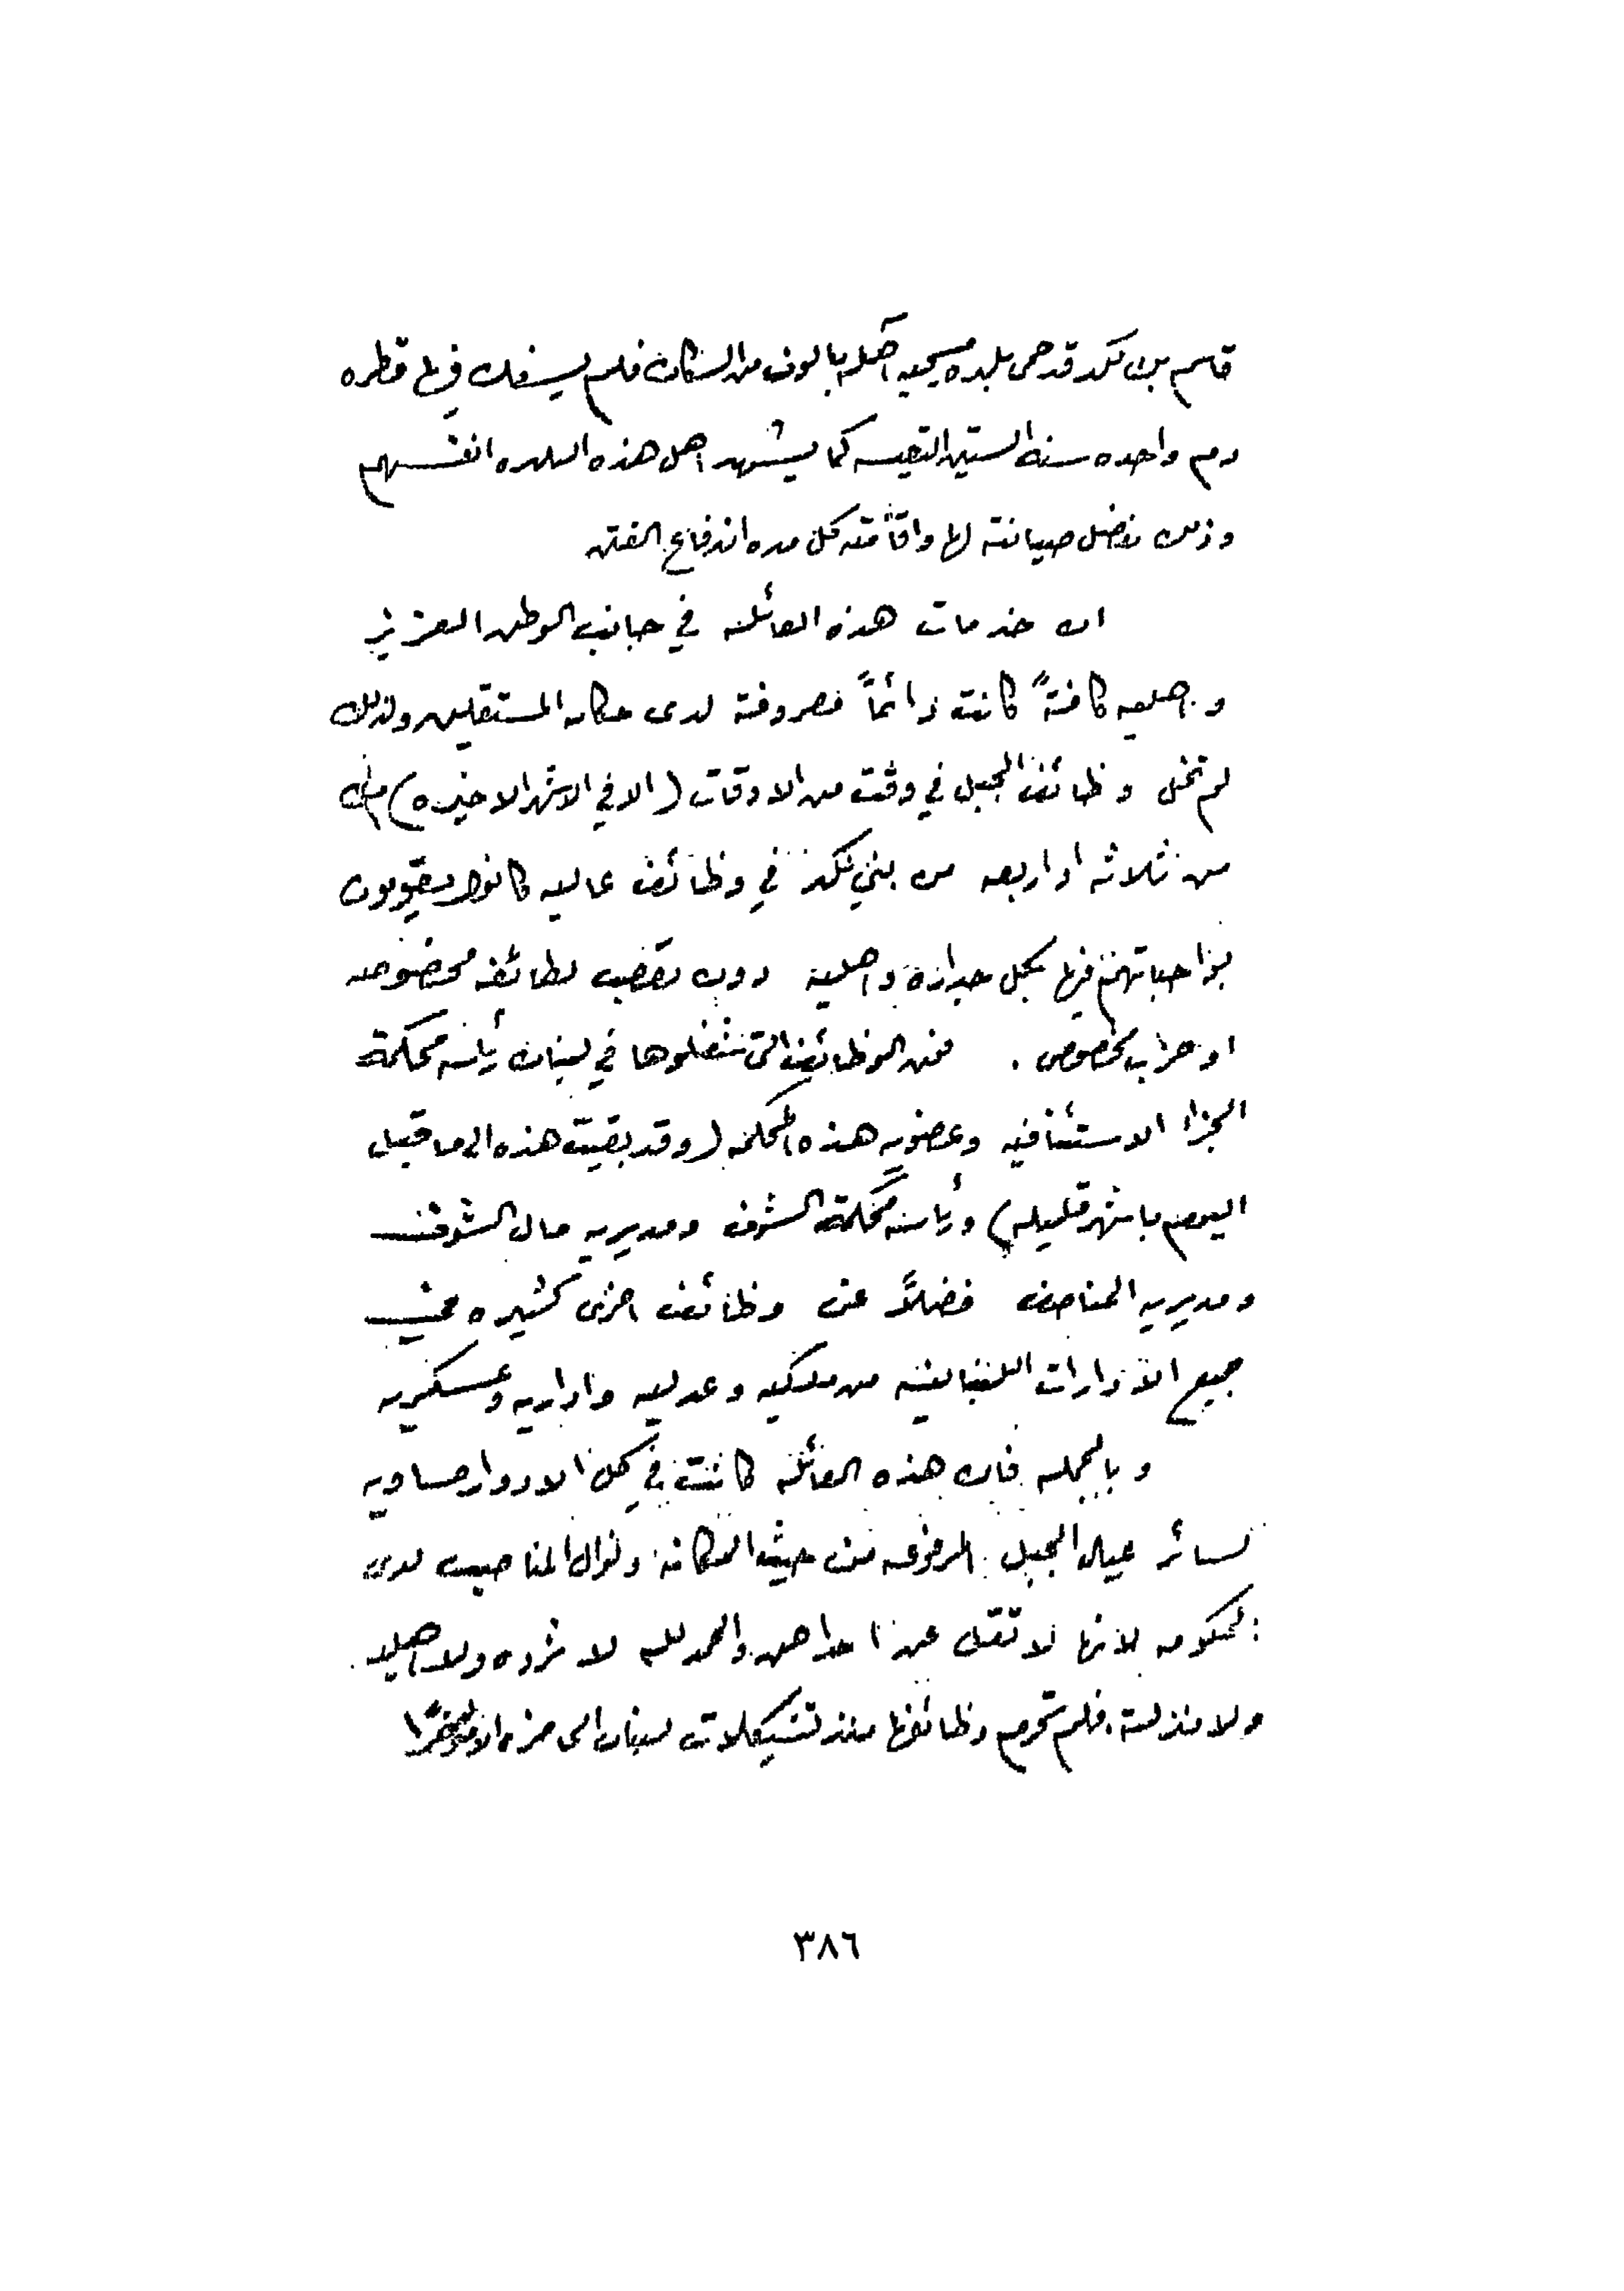 قاسم بك نكد قد حمى بلده مسيحيه آهله بالوف من السكان فلم يسفك فيها قطره
دم واحده سنة الستين التعيسه كما يشهد اهل هذه البلده انفسهم
وذلك بفضل صيانته لها واقامته كل مده اندفاع الفتن
ان خدمات هذه العائله في جانب الوطن العزيز
واهليه كافةً كانت دائماً معروفة لدى حكامه المستقلين ولذلك
لم تخل وظائف الجبل في وقت من الاوقات (الا في الاشهر الاخيره)
من ثلاثه او اربعه من بني نكد في وظائف عاليه كانوا يقومون
بواجباتهم فيها بكل جدارة واهلية دون تعصب لطائفه مخصوصه
او حزب مخصوص . فمن الوظائف التي شغلوها في لبنان رئاسه محكمة
الجزاء الاستئنافيه وعضويه هذه المحكمه (وقد بقيت هذه الى ما قبل
اليوم باشهر قليله) ورئاسة محكمة الشوف ومديريه مال الشوف
ومديريه المناصف فضلاً عن وظائف اخرى كثيره في
جميع الادارات اللبنانيه من ملكيه وعدليه واداريه وعسكريه
وبالجمله فان هذه العائله كانت في كل الادوار مساويه
لسائر عيال الجبل المرفوعه من حيث المكانة ونوال المناصب لدى
الحكومه لانها لا تقل عن احداهن والحمد لله لا ثروه ولا اهليه
ولا منزلة . فلم تحرم وظائفها منذ تشكيلات لبنان الى هذه الايام مؤخرًا
٣٨٦